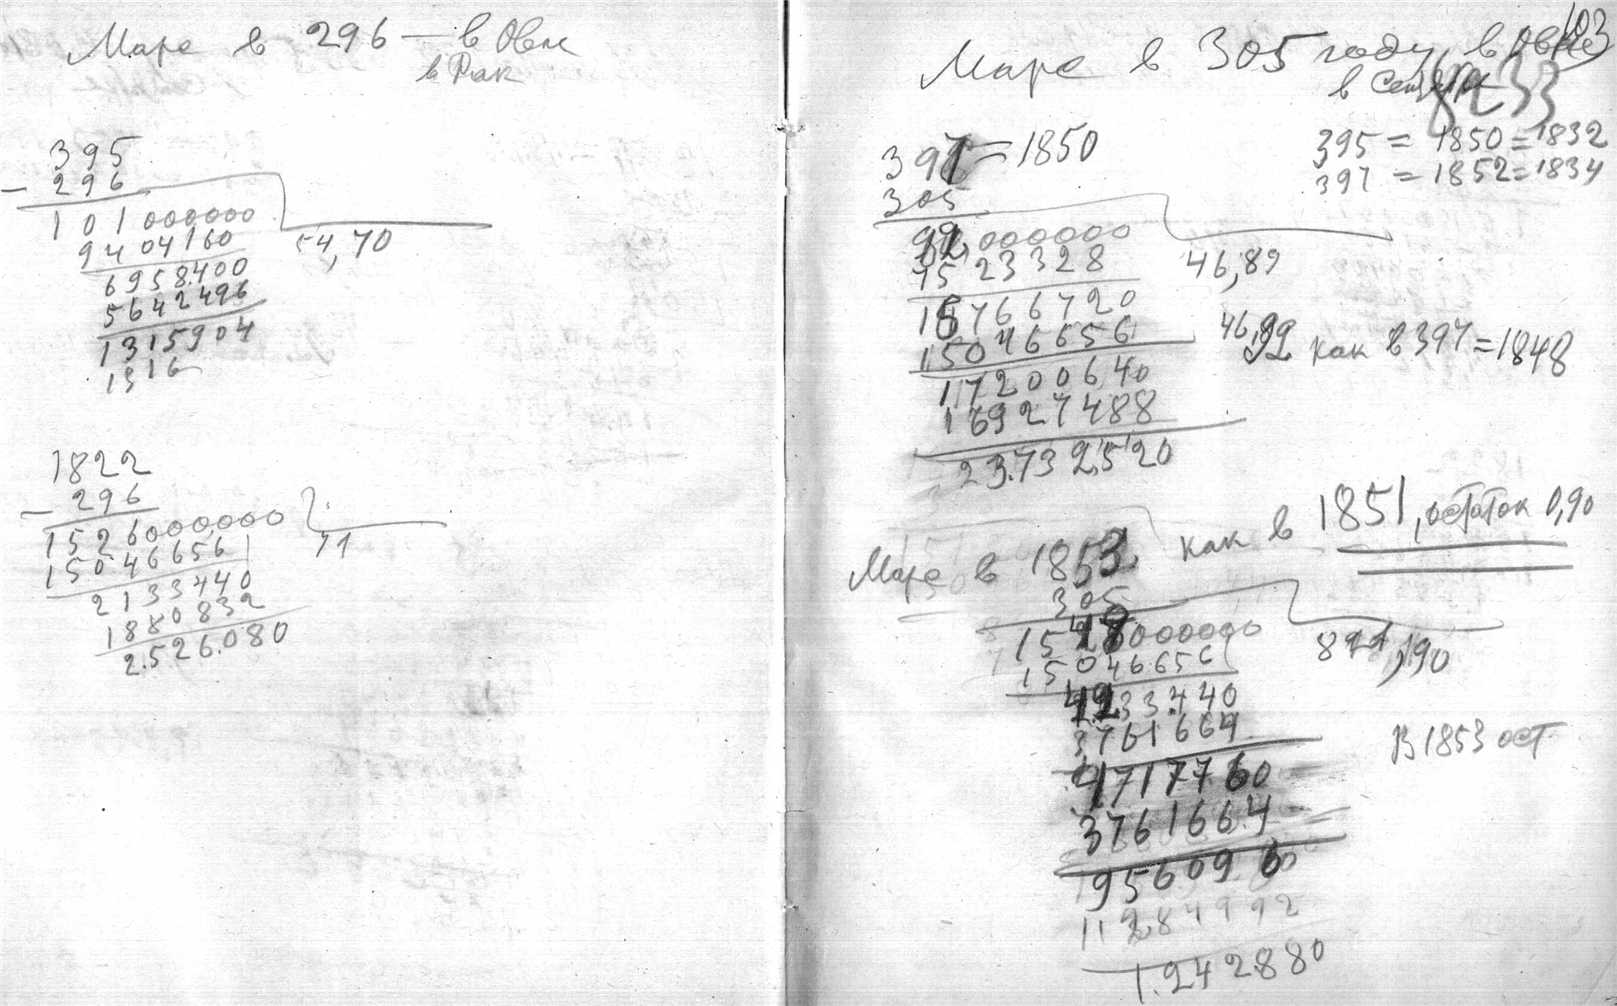 Марс в 296 — в Овне
в Рак
395
– 296
101000000
9404160 54,70
6958400
5642496
1315904
1316
1822
– 296
1526000000
15046656 71
2133440
1880832
2.526.080
103
Марс в 305 году, в Овне
в
8233
397 = 1850
395 = 1850 = 1832
397 = 1852 = 1834
305
92,000000
7523328 46,89
18766720
15046656
46,92 как в 397 = 1848
17200640
16927488
23.732520
Марс в 1853 как в 1851, остаток 0,90
305
1548000000
15046656
4233440
3761664
В 1853 ост
4717760
3761664
9560960
11284992
1.242880